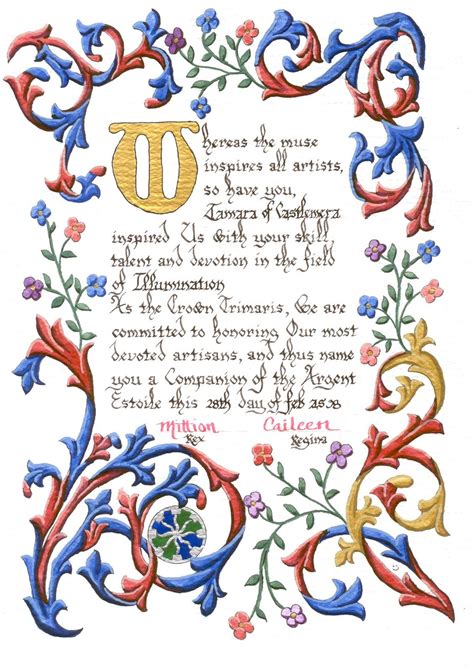 Whereas the muse
inspires all artists,
so have you,
Tamara of Castlemera
inspired Us with your skill,
talent and devotion in the field
of Illumination
As the Crown Trimaris, We are
committed to honoring Our most
devoted artisans, and thus name
you a Companion of the Argent
Estoile this 28th day of feb as38
Mittion Caileen
Rex Regina